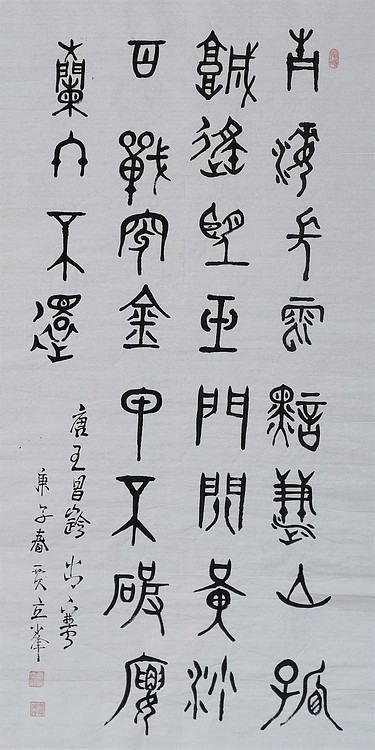 青海長雲黯雪山孤
城遙望玉門關黃沙
百戰穿金甲不破樓
蘭終不還
唐王昌齡出塞
庚子春賈立峯